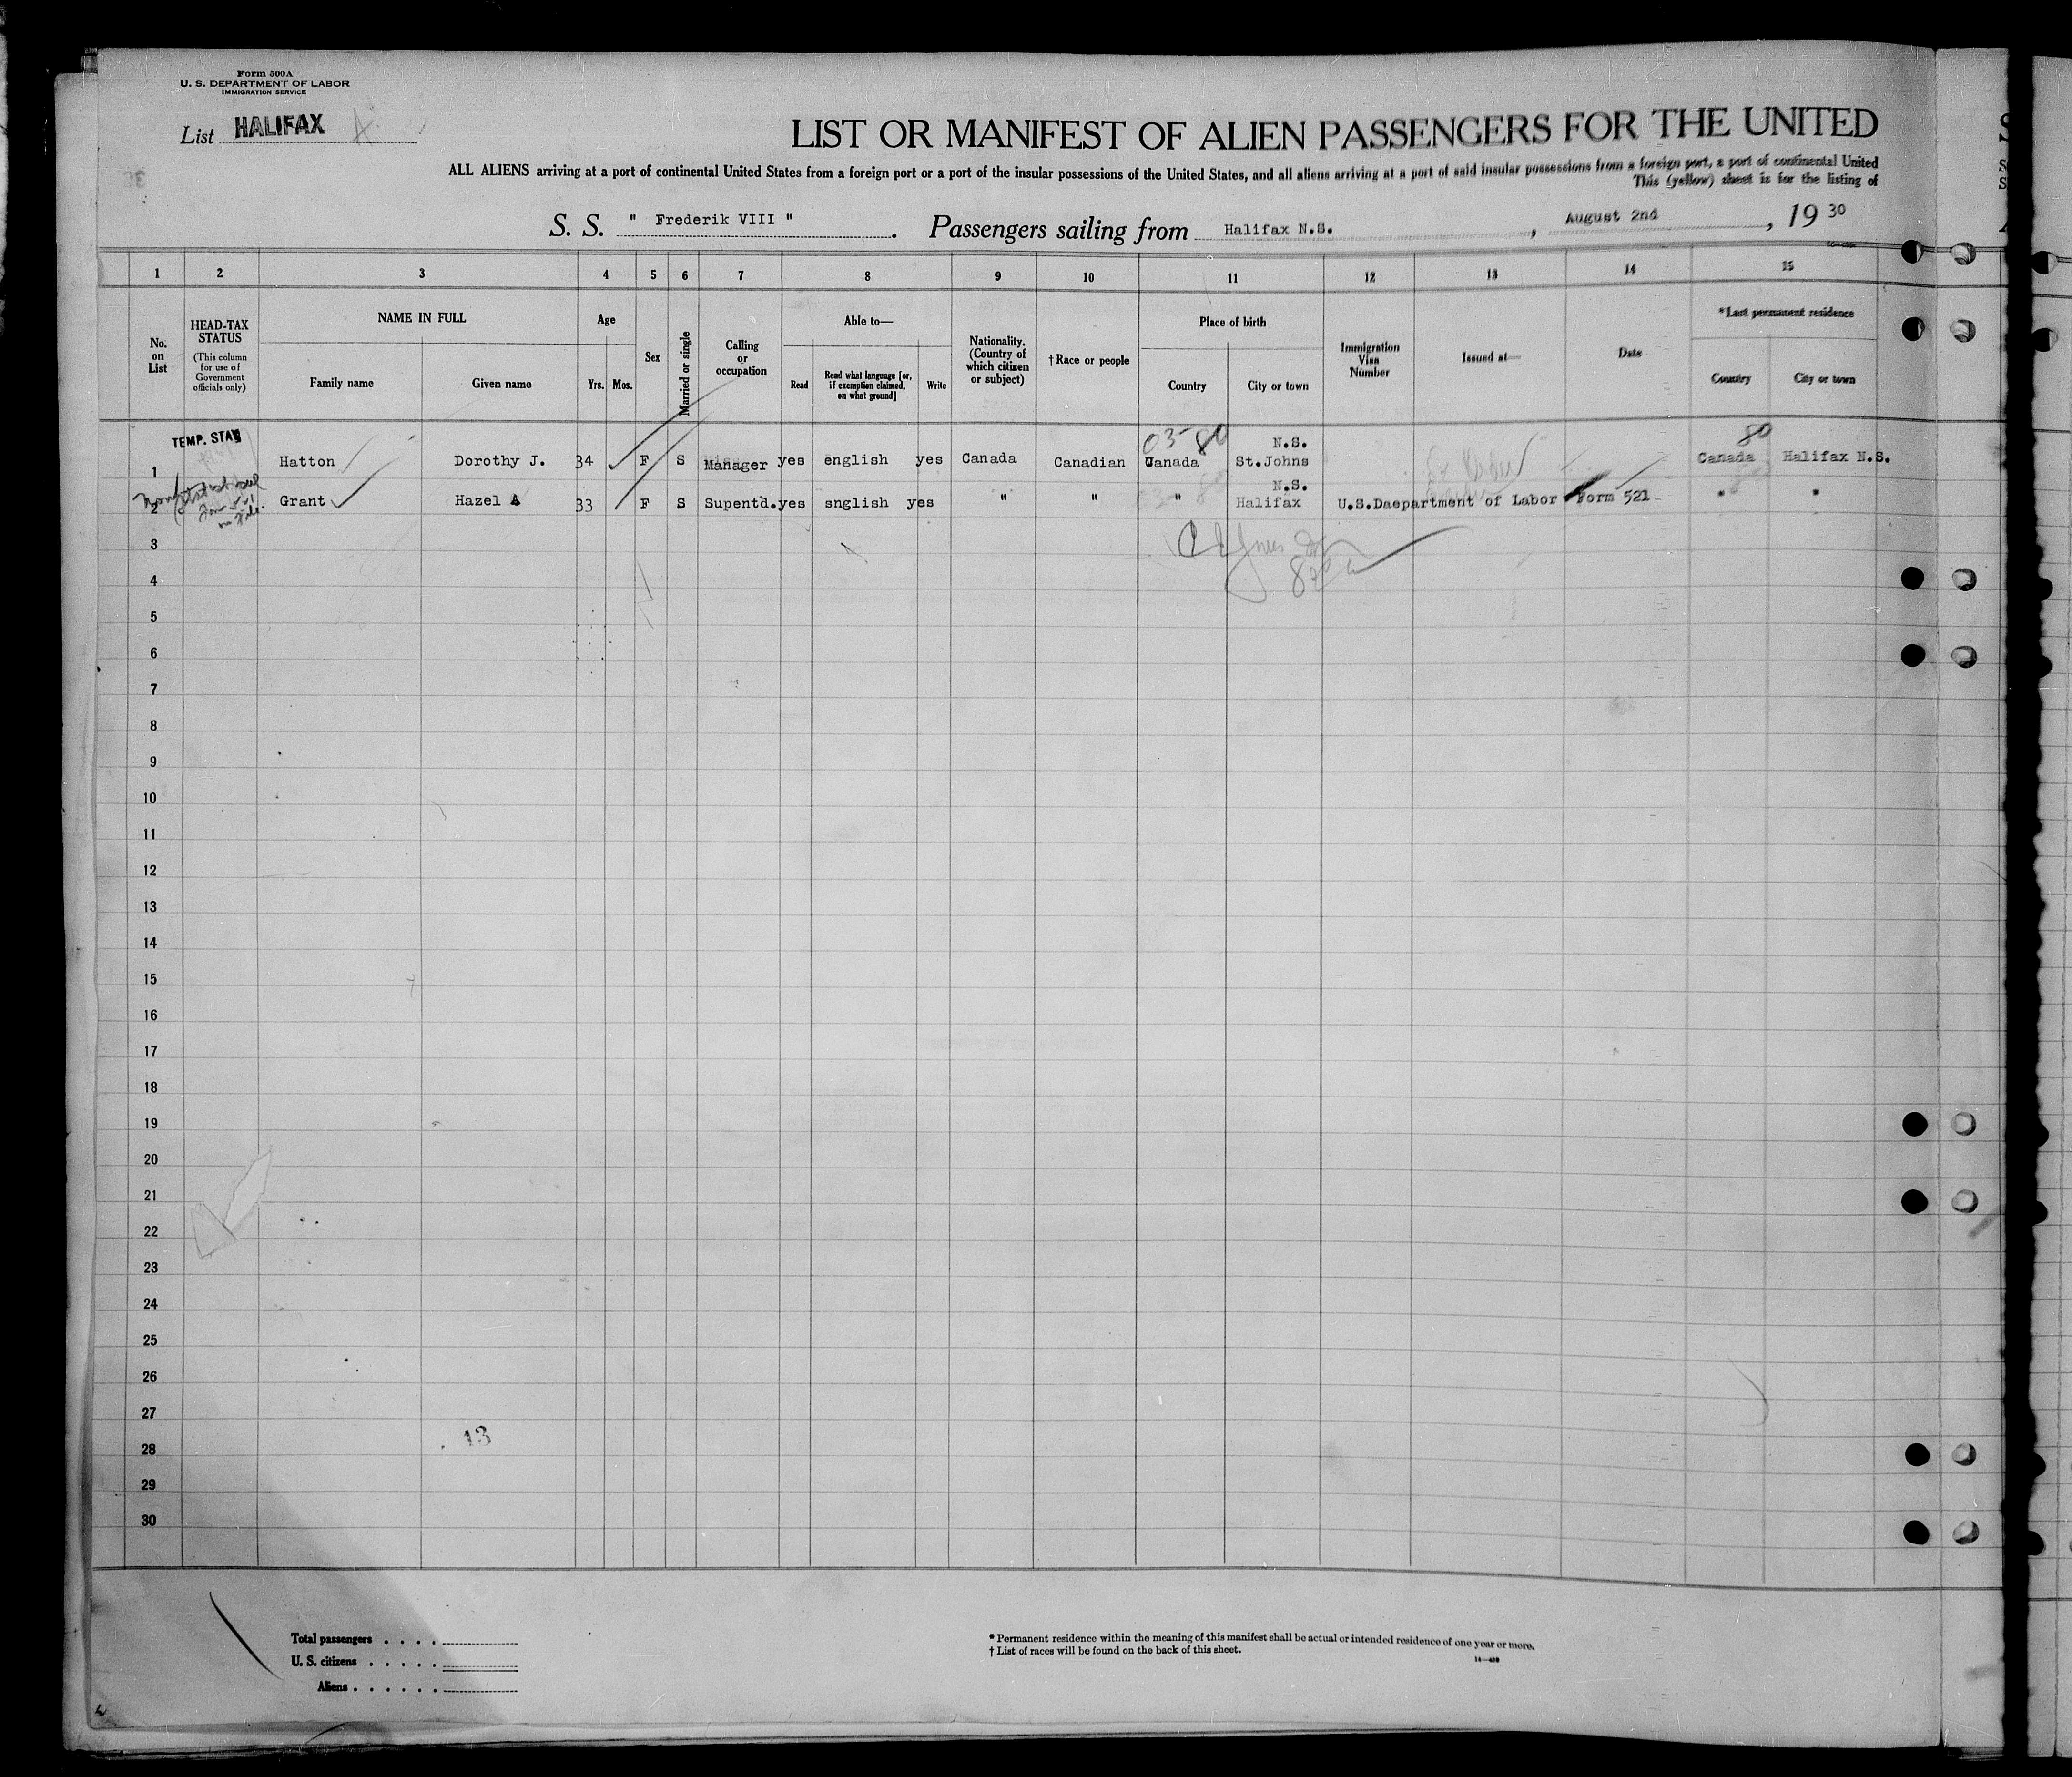 Form 500A
U. S. DEPARTMENT OF LABOR
IMMIGRATION SERVICE
List HALIFAX
LIST OR MANIFEST OF ALIEN PASSENGERS FOR THE UNITED
ALL ALIENS arriving at a port of continental United States from a foreign port or a port of the insular possessions of the United States, and all aliens arriving at a port of said insular possessions from a foreign port, a port of continental United
This (yellow) sheet is for the listing of
S. S. " Frederik VIII " . Passengers sailing from Halifax N.S. , August 2nd , 19 30
1 2 3 4 5 6 7 8 9 10 11 12 13 14 15
No. on List
HEAD-TAX STATUS
(This column for use of Government officials only)
NAME IN FULL
Family name Given name
Age
Yrs. Mos.
Sex
Married or single
Calling or occupation
Able to—
Read Read what language [or, if exemption claimed, on what ground] Write
Nationality. (Country of which citizen or subject)
†Race or people
Place of birth
Country City or town
Immigration Visa Number
Issued at—
Date
*Last permanent residence
Country City or town
TEMP. STAY 03- 80 N.S. 80
1 Hatton Dorothy J. 34 F S Manager yes english yes Canada Canadian Canada St.Johns Canada Halifax N.S.
N.S.
2 Grant Hazel A 33 F S Supentd. yes snglish yes " " " Halifax U.S.Daepartment of Labor Form 521 " "
3
4
5
6
7
8
9
10
11
12
13
14
15
16
17
18
19
20
21
22
23
24
25
26
27
13
28
29
30
Total passengers . . . .
U. S. citizens . . . . .
Aliens . . . . . .
* Permanent residence within the meaning of this manifest shall be actual or intended residence of one year or more.
† List of races will be found on the back of this sheet.